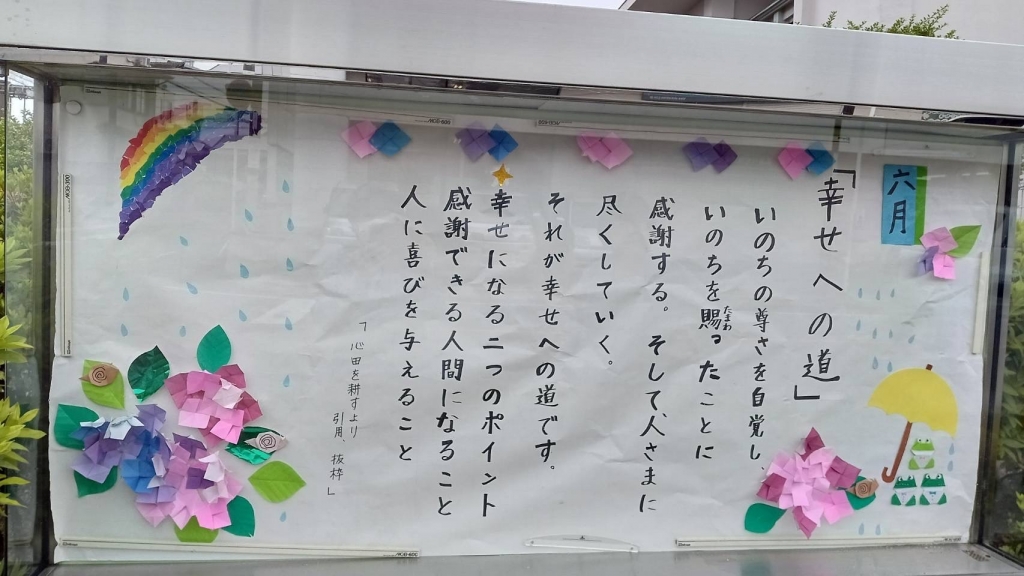 六月
「幸せへの道」
いのちの尊さを自覚し、
いのちを賜ったことに
たまわ
感謝する。そして、人さまに
尽くしていく。
それが幸せへの道です。
幸せになる二つのポイント
感謝できる人間になること
人に喜びを与えること
「心田を耕すより
引用、抜粋」